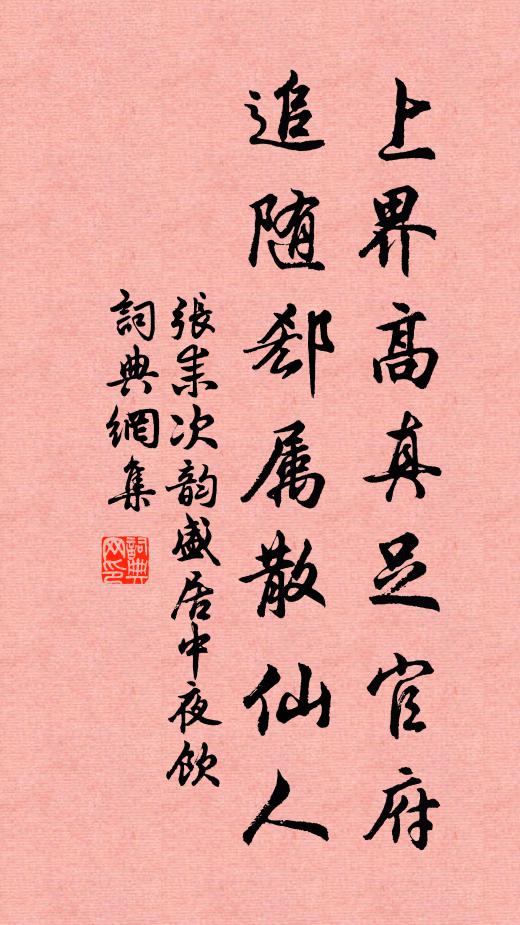 上界高真足官府
追随却属散仙人
張耒次韵盛居中夜飲
詞典網集
詞典
网印